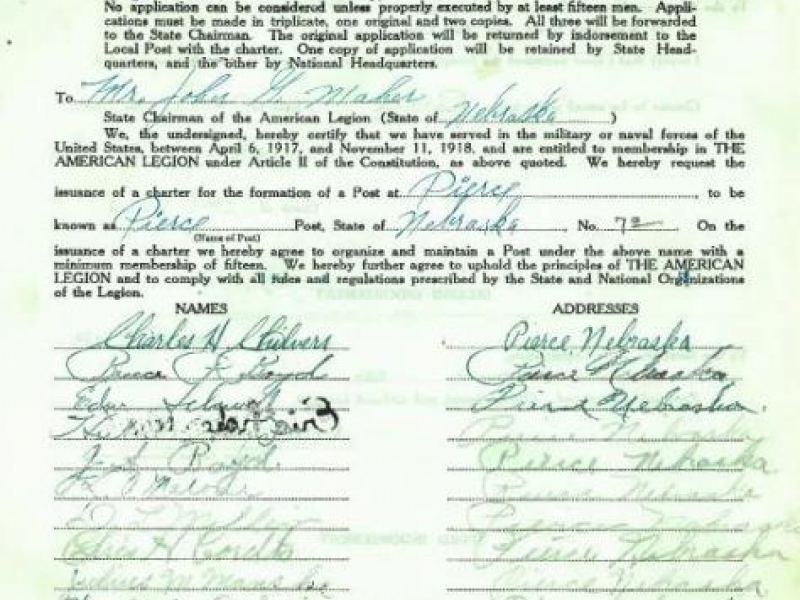 No application can be considered unless properly executed by at least fifteen men. Appli-
cations must be made in triplicate, one original and two copies. All three will be forwarded
to the State Chairman. The original application will be returned by indorsement to the
Local Post with the charter. One copy of application will be retained by State Head-
quarters, and the other by National Headquarters.
To Mr. John G. Maher
State Chairman of the American Legion (State of Nebraska )
We, the undersigned, hereby certify that we have served in the military or naval forces of the
United States, between April 6, 1917, and November 11, 1918, and are entitled to membership in THE
AMERICAN LEGION under Article II of the Constitution, as above quoted. We hereby request the
issuance of a charter for the formation of a Post at Pierce, to be
known as Pierce Post, State of Nebraska, No. 72 On the
(Name of Post)
issuance of a charter we hereby agree to organize and maintain a Post under the above name with a
minimum membership of fifteen. We hereby further agree to uphold the principles of THE AMERICAN
LEGION and to comply with all rules and regulations prescribed by the State and National Organizations
of the Legion.
NAMES ADDRESSES
Charles H. Chilvers Pierce, Nebraska
Bruce F. Boyd Pierce Nebraska
Pierce Nebraska.
Pierce Nebraska
Boyd. Pierce Nebraska
Pierce Nebraska
Pierce Nebraska
Pierce, Nebraska
M. Pierce Nebraska